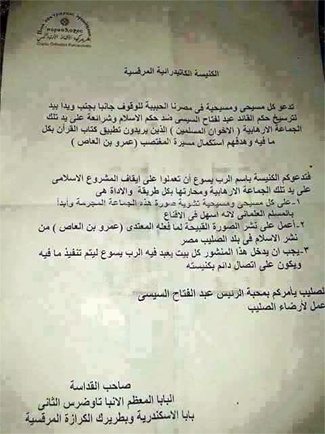 ПАТРИАРХОС
Coptic Orthodox Patriarchate
الكنيسة الكاتيدرائية المرقسية
تدعو كل مسيحى ومسيحية في مصرنا الحبيبة للوقوف جانبا بجنب ويدا بيد
لترسيخ حكم القائد عبد الفتاح السيسى ضد حكم الاسلام وشرائعة على يد تلك
الجماعة الارهابية (الاخوان المسلمين) الذين يريدون تطبيق كتاب القرآن بكل
ما فيه وهدفهم استكمال مسيرة المغتصب (عمرو بن العاص)
فتدعوكم الكنيسة باسم الرب يسوع أن تعملوا على إيقاف المشروع الاسلامى
على يد تلك الجماعة الارهابية ومحاربتها بكل طريقة والاداة هى
١- على كل مسيحى ومسيحية تشوية صورة هذه الجماعة المجرمة وأبدأ
بالمسلم العلمانى لانه اسهل فى الاقناع
٢-أعمل على نشر الصورة القبيحة لما فعله المعتدى (عمرو بن العاص) من
نشر الاسلام فى بلد الصليب مصر
٣-يجب ان يدخل هذا المنشور كل بيت يعبد فيه الرب يسوع ليتم تنفيذ ما فيه
ويكون على اتصال دائم بكنيسته
الصليب يأمركم بمحبة الرئيس عبد الفتاح السيسى
عمل لأرضاء الصليب
صاحب القداسة
البابا المعظم الانبا تاوضرس الثانى
بابا الاسكندرية وبطريرك الكرازة المرقسية